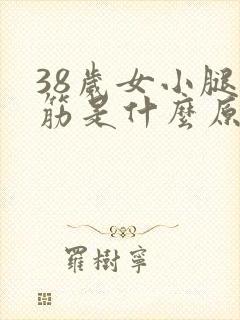 38歲女小腿
筋是什麼原
羅樹寧